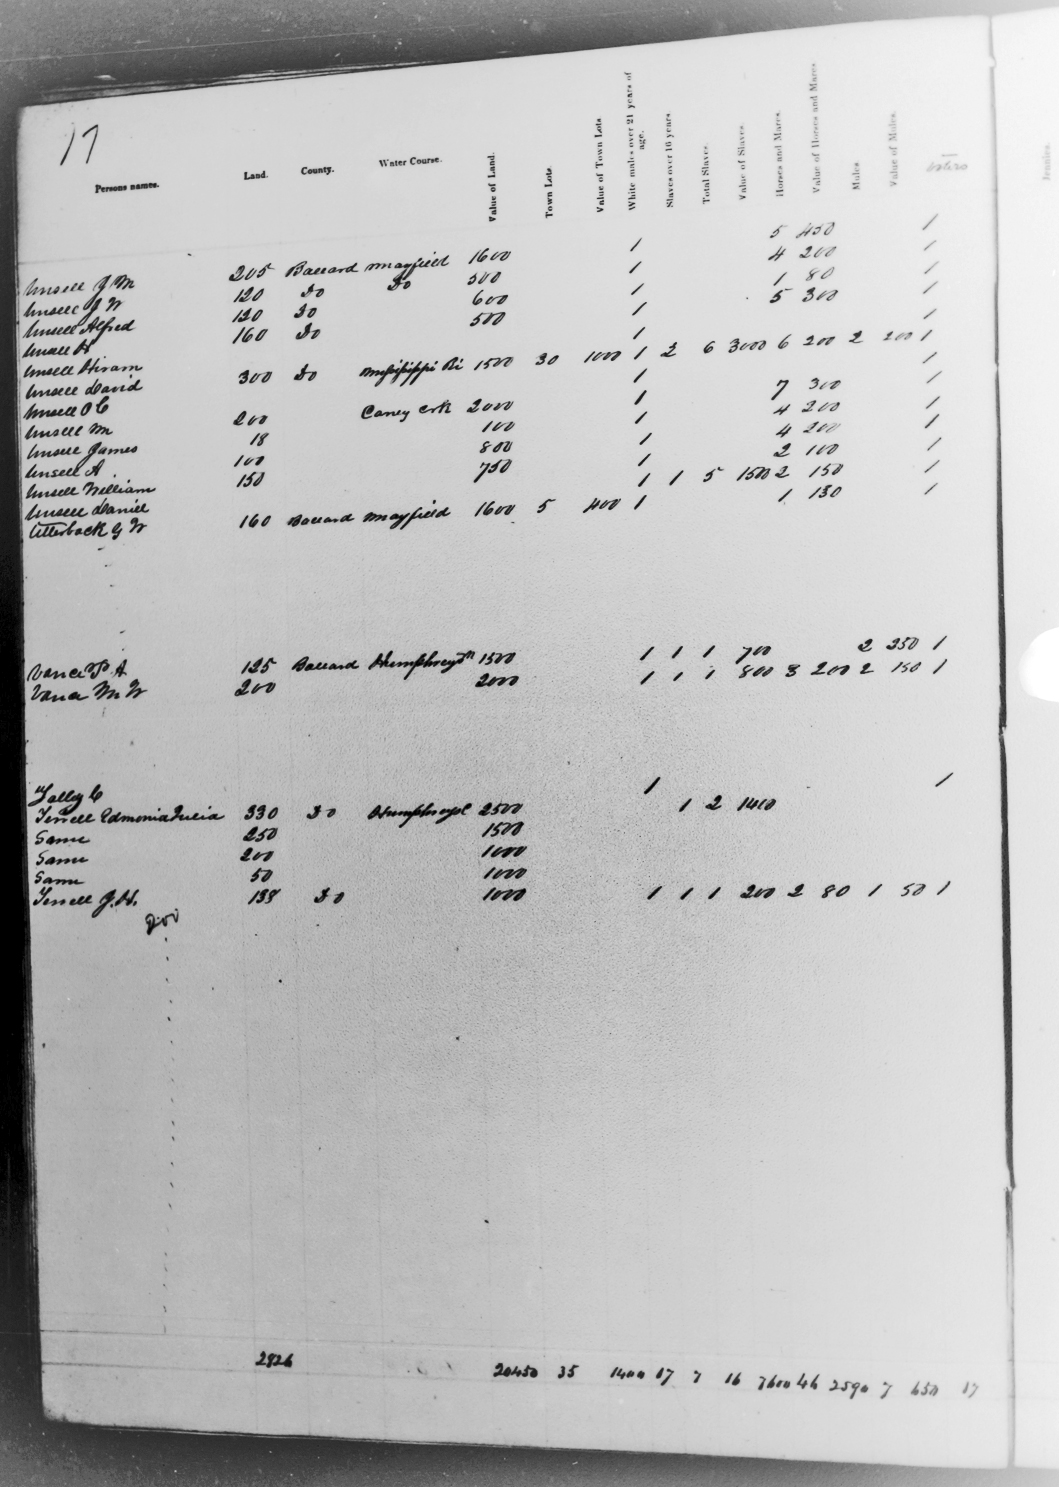 17
Persons names. Land. County. Water Course. Value of Land. Town Lots. Value of Town Lots White males over 21 years of age. Slaves over 16 years. Total Slaves. Value of Slaves. Horses and Mares. Value of Horses and Mares Mules Value of Mules. voters Jennies.
Unsell J M 205 Ballard Mayfield 1600 1 5 450 1
Unsell J W 120 Do Do 500 1 4 200 1
Unsell Alfred 120 Do 600 1 1 80 1
Unsell H 160 Do 500 1 5 300 1
Unsell Hiram 1
Unsell David 300 Do Missisippi Ri 1500 30 1000 1 2 6 3000 6 200 2 200 1
Unsell O C 1 1
Unsell M 200 Caney Crk 2000 1 7 300 1
Unsell James 18 100 1 4 200 1
Unsell A 100 800 1 4 200 1
Unsell William 150 750 1 2 100 1
Unsell Daniel 1 1 5 1500 2 150 1
Utterback G W 160 Ballard Mayfield 1600 5 400 1 1 130 1
Vance P A 125 Ballard Humphreys 1500 1 1 1 700 2 250 1
Vance M W 200 2000 1 1 1 800 3 200 2 150 1
Talley C 1 1
Terrell Edmonia Julia 330 Do Humphreys 2500 1 2 1400
Same 250 1500
Same 200 1000
Same 50 1000
Terrell J. H. 138 Do 1000 1 1 1 200 2 80 1 50 1
2926 20450 35 1400 17 7 16 7600 46 2590 7 650 17